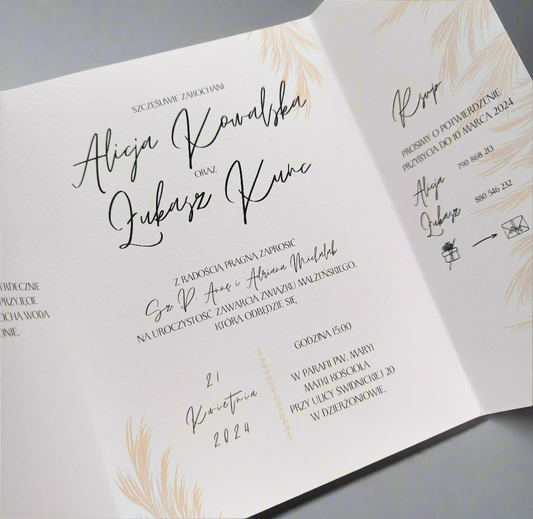 SZCZĘŚLIWIE ZAKOCHANI
Alicja Kowalska
ORAZ
Łukasz Kunc
Z RADOŚCIĄ PRAGNĄ ZAPROSIĆ
Sz. P. Annę i Adriana Michalak
NA UROCZYSTOŚĆ ZAWARCIA ZWIĄZKU MAŁŻEŃSKIEGO,
KTÓRA ODBĘDZIE SIĘ
21
Kwietnia
2024
GODZINA 15:00
W PARAFII PW. MARYI
MATKI KOŚCIOŁA
PRZY ULICY ŚWIDNICKIEJ 20
W DZIERŻONIOWIE.
Rsvp
PROSIMY O POTWIERDZENIE
PRZYBYCIA DO 10 MARCA 2024
Alicja 790 868 213
Łukasz 880 546 232
ERDECZNIE
PRZYJĘCIE
OCHA WODA
ONIE.